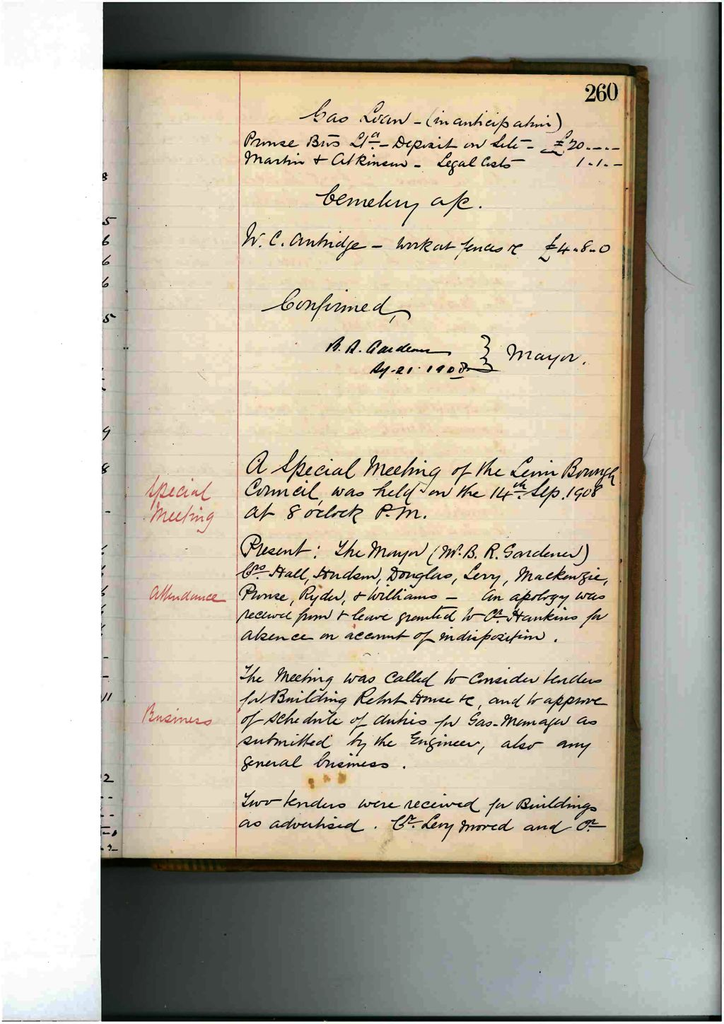 260
Gas Loan - (in anticipation)
Prouse Bros Ltd. - Deposit on Site - £20 - - - -
Martin & Atkinson - Legal Costs - 1 - 1 - -
Cemetery a/c.
W. C. Antridge - Work at fences &c £4 - 8 - 0
Confirmed,
B. R. Gardener } Mayor.
21 1908
A Special Meeting of the Levin Borough
Special
Council, was held on the 14th Sep. 1908
Meeting
at 8 oclock P.M.
Present: The Mayor (Mr. B. R. Gardener)
Crs. Hall, Hudson, Douglas, Levy, Mackenzie,
Attendance
Prouse, Ryder, & Williams - An apology was
received from & leave granted to Cr. Hankins for
absence on account of indisposition.
The Meeting was called to Consider tenders
for Building Retort House &c, and to approve
Business
of schedule of duties for Gas-Manager as
submitted by the Engineer, also any
general business.
Two tenders were received for Buildings
as advertised. Cr. Levy moved and Cr.